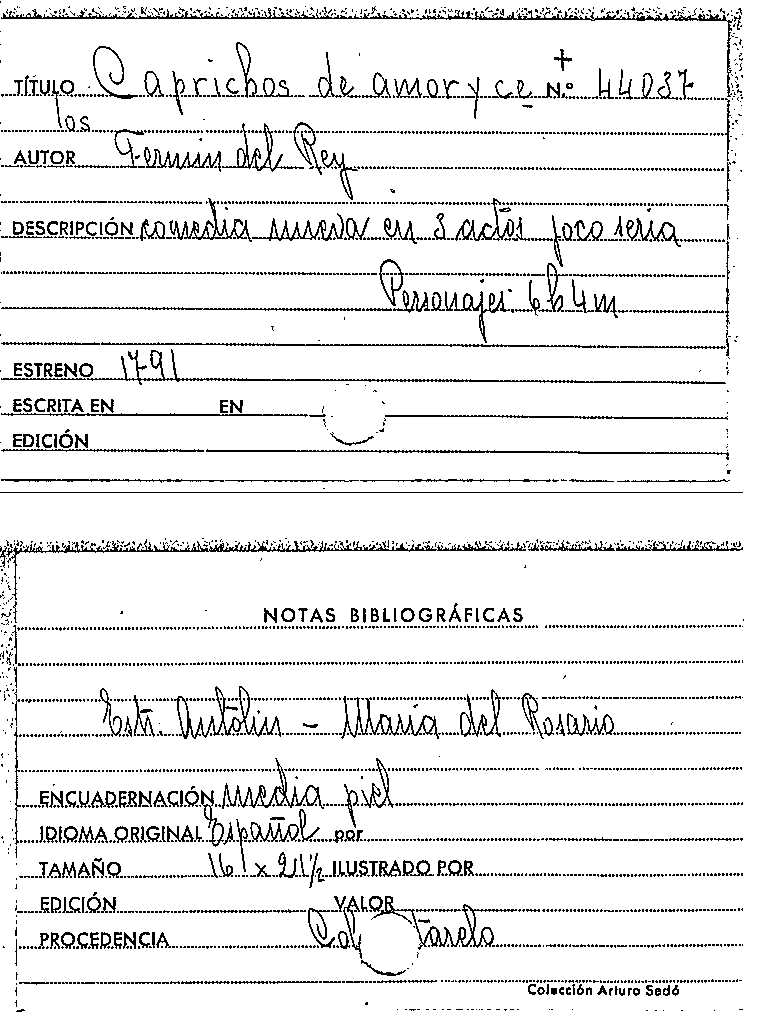 TÍTULO Caprichos de amor y ce Nº 44037
los
AUTOR Fermin del Rey
DESCRIPCIÓN comedia nueva en 3 actos joco seria
Personajes: 6h 4m
ESTRENO 1791
ESCRITA EN EN
EDICIÓN
NOTAS BIBLIOGRÁFICAS
Estr. Antolin - Maria del Rosario
ENCUADERNACIÓN media piel
IDIOMA ORIGINAL Español por
TAMAÑO 16 x 21 1/2 ILUSTRADO POR
EDICIÓN VALOR
PROCEDENCIA
Colección Arturo Sedó